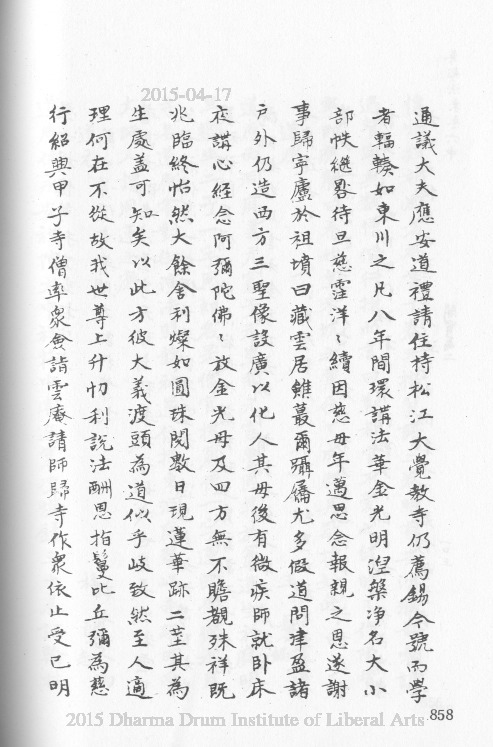 2015-04-17
通議大夫應安道禮請住持松江大覺教寺仍薦錫今號而學
者輻輳如東川之凡八年間環講法華金光明涅槃淨名大小
部帙繼晷待旦慈霔洋〻續因慈母年邁思念報親之恩遂謝
事歸寧廬於祖墳曰藏雲居雖蕞爾躡屩尤多假道問津盈諸
戶外仍造西方三聖像設廣以化人其母後有微疾師就卧床
夜講心經念阿彌陀佛〻放金光母及四方無不瞻覩殊祥既
兆臨終怡然大餘舍利燦如圓珠閱數日現蓮華跡二莖其為
生處蓋可知矣以此方彼大義渡頭為道似乎歧致然至人適
理何在不從故我世尊上升忉利說法酬恩指鬘比丘彌為慈
行紹興甲子寺僧率衆僉詣雲庵請師歸寺作衆依止受已明
858
2015 Dharma Drum Institute of Liberal Arts